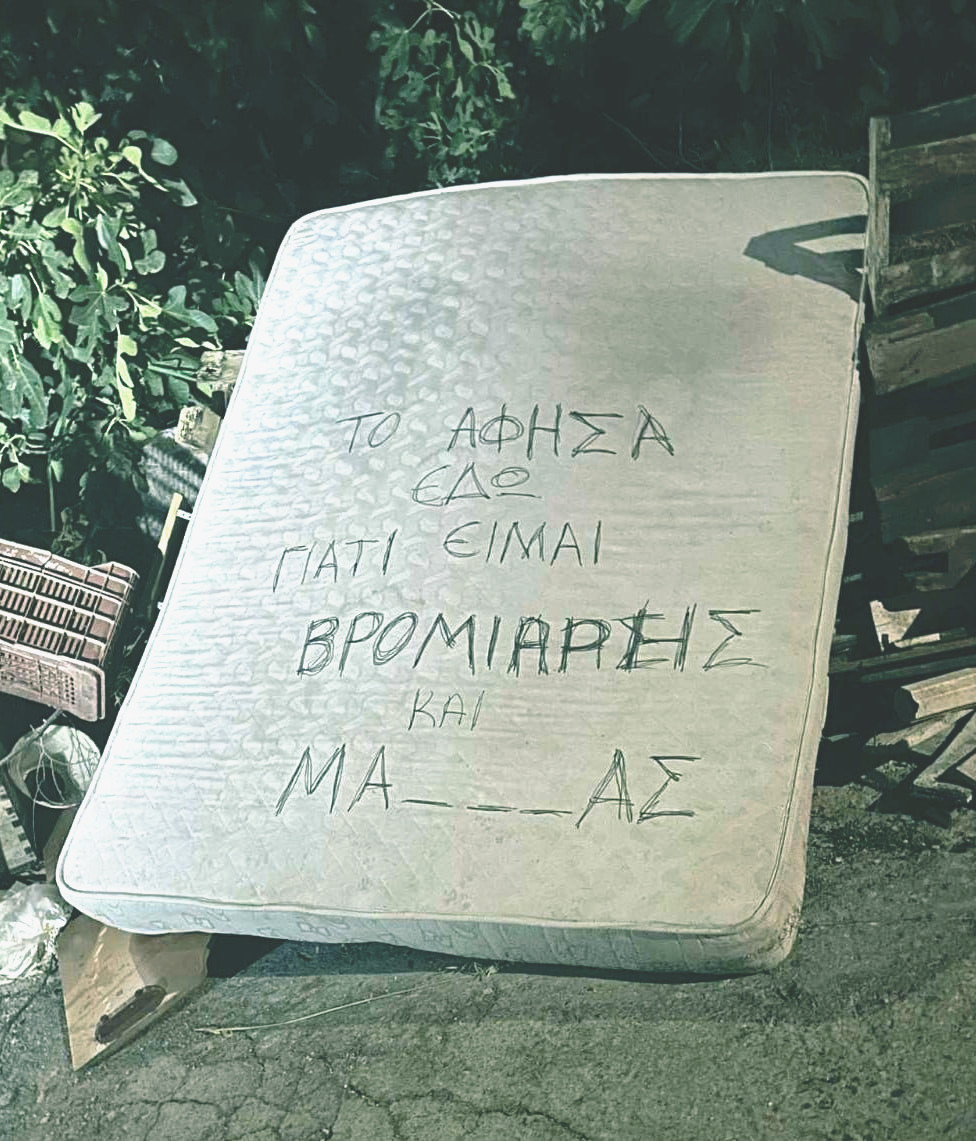 ΤΟ ΑΦΗΣΑ
ΕΔΩ
ΓΙΑΤΙ ΕΙΜΑΙ
ΒΡΟΜΙΑΡΗΣ
ΚΑΙ
ΜΑ___ΑΣ